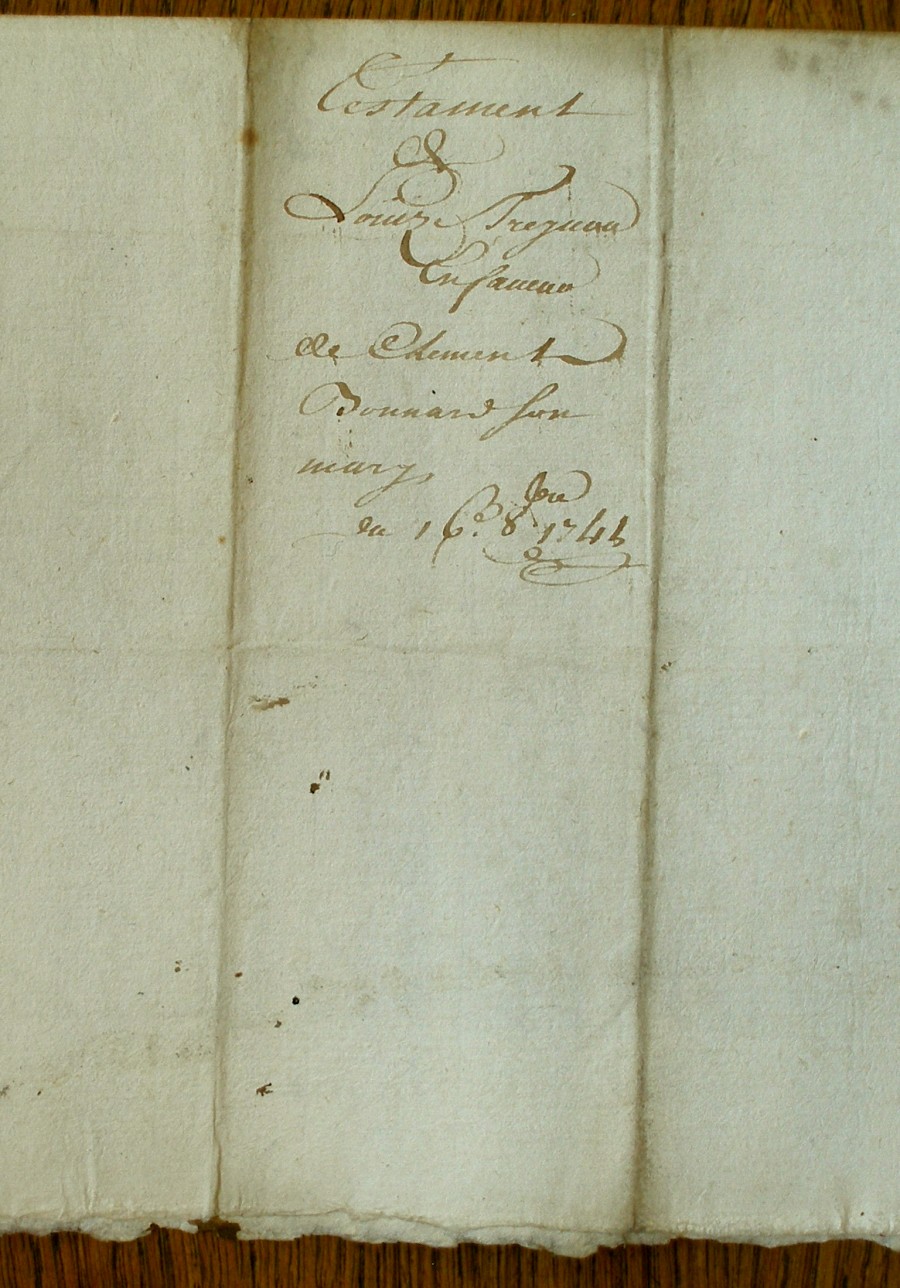 Testament
de
Louize Tregnau
En faueur
de Clement
Bonnard son
mary
du 16e 8bre 1741